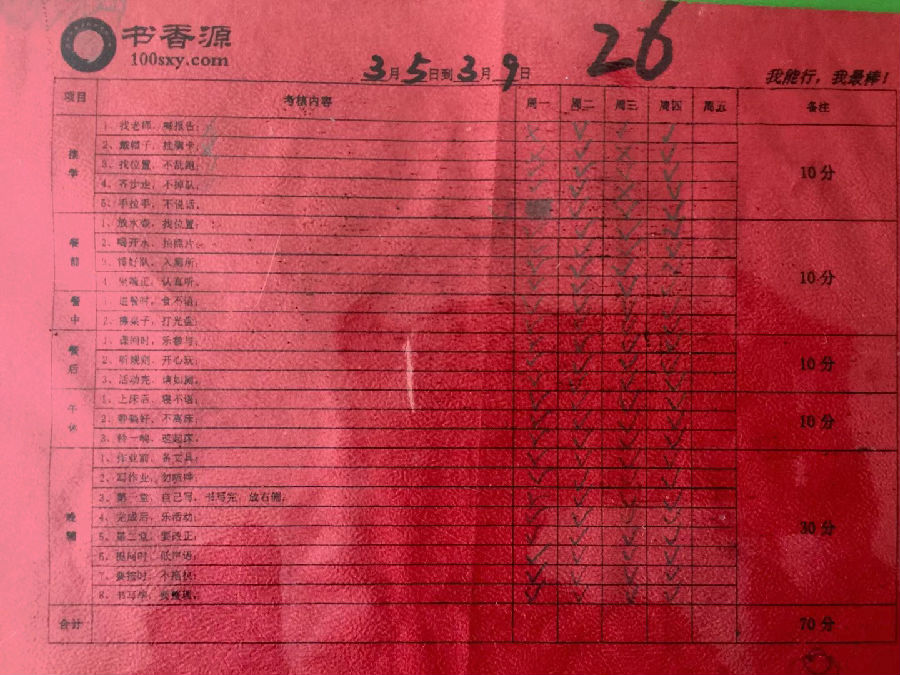 书香源
100sxy.com
26
3月5日到3月9日
我能行，我最棒！
项目 考核内容 周一 周二 周三 周四 周五 备注
接学
1、找老师，喊报告；
2、戴帽子，挂胸卡；
3、找位置，不乱跑；
4、齐步走，不掉队；
5、手拉手，不说话。
10分
餐前
1、放水壶，找位置；
2、喝开水，拍照片；
3、排好队，入厕所；
4、坐端正，认真听。
10分
餐中
1、进餐时，食不语；
2、擦桌子，打光盘；
餐后
1、课间时，乐参与；
2、听规则，开心玩；
3、活动完，
10分
午休
1、上床后，寝不语；
2、不离床；
3、铃一响，
10分
晚辅
1、作业前，备文具；
2、写作业，勿喧哗；
3、第一堂，自己写，书写完，放右侧；
4、完成后，乐活动；
5、第二堂，要改正；
6、提问时，低声语；
7、
8、
30分
合计 70分